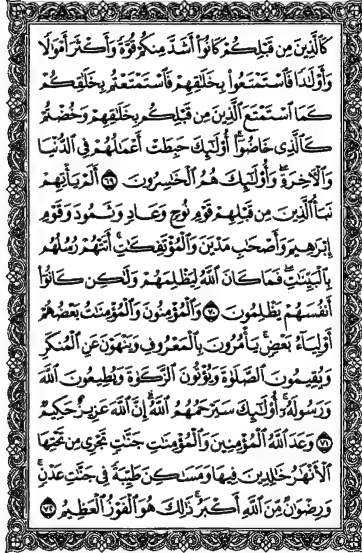 كَٱلَّذِينَ مِن قَبۡلِكُمۡ كَانُوٓاْ أَشَدَّ مِنكُمۡ قُوَّةٗ وَأَكۡثَرَ أَمۡوَٰلٗا
وَأَوۡلَٰدٗا فَٱسۡتَمۡتَعُواْ بِخَلَٰقِهِمۡ فَٱسۡتَمۡتَعۡتُم بِخَلَٰقِكُمۡ
كَمَا ٱسۡتَمۡتَعَ ٱلَّذِينَ مِن قَبۡلِكُم بِخَلَٰقِهِمۡ وَخُضۡتُمۡ
كَٱلَّذِي خَاضُوٓاْۚ أُوْلَٰٓئِكَ حَبِطَتۡ أَعۡمَٰلُهُمۡ فِي ٱلدُّنۡيَا
وَٱلۡأٓخِرَةِۖ وَأُوْلَٰٓئِكَ هُمُ ٱلۡخَٰسِرُونَ ٦٩ أَلَمۡ يَأۡتِهِمۡ
نَبَأُ ٱلَّذِينَ مِن قَبۡلِهِمۡ قَوۡمِ نُوحٖ وَعَادٖ وَثَمُودَ وَقَوۡمِ
إِبۡرَٰهِيمَ وَأَصۡحَٰبِ مَدۡيَنَ وَٱلۡمُؤۡتَفِكَٰتِۚ أَتَتۡهُمۡ رُسُلُهُم
بِٱلۡبَيِّنَٰتِۖ فَمَا كَانَ ٱللَّهُ لِيَظۡلِمَهُمۡ وَلَٰكِن كَانُوٓاْ
أَنفُسَهُمۡ يَظۡلِمُونَ ٧٠ وَٱلۡمُؤۡمِنُونَ وَٱلۡمُؤۡمِنَٰتُ بَعۡضُهُمۡ
أَوۡلِيَآءُ بَعۡضٖۚ يَأۡمُرُونَ بِٱلۡمَعۡرُوفِ وَيَنۡهَوۡنَ عَنِ ٱلۡمُنكَرِ
وَيُقِيمُونَ ٱلصَّلَوٰةَ وَيُؤۡتُونَ ٱلزَّكَوٰةَ وَيُطِيعُونَ ٱللَّهَ
وَرَسُولَهُۥٓۚ أُوْلَٰٓئِكَ سَيَرۡحَمُهُمُ ٱللَّهُۗ إِنَّ ٱللَّهَ عَزِيزٌ حَكِيمٞ
٧١ وَعَدَ ٱللَّهُ ٱلۡمُؤۡمِنِينَ وَٱلۡمُؤۡمِنَٰتِ جَنَّٰتٖ تَجۡرِي مِن تَحۡتِهَا
ٱلۡأَنۡهَٰرُ خَٰلِدِينَ فِيهَا وَمَسَٰكِنَ طَيِّبَةٗ فِي جَنَّٰتِ عَدۡنٖۚ
وَرِضۡوَٰنٞ مِّنَ ٱللَّهِ أَكۡبَرُۚ ذَٰلِكَ هُوَ ٱلۡفَوۡزُ ٱلۡعَظِيمُ ٧٢